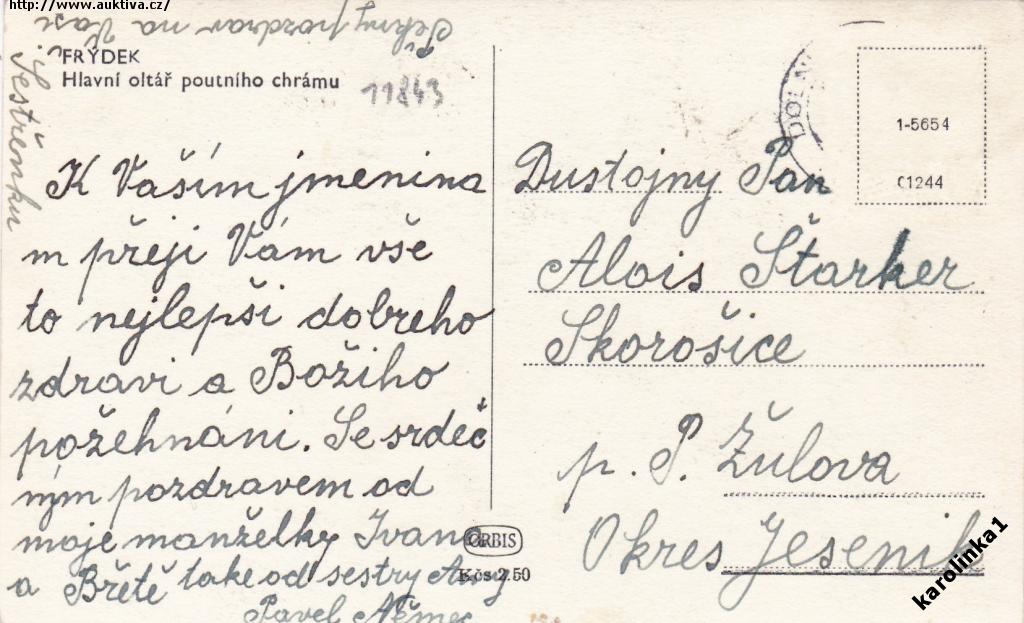 http://www.auktiva.cz/
Pěkny pozdrav na Vaši
Sestřenku
FRÝDEK
Hlavní oltář poutního chrámu
11843
K Vaším jmenina
m přeji Vám vše
to nejlepši dobreho
zdravi a Božiho
požehnáni. Se srdeč
ným pozdravem od
moje manželky Ivana
a Břětě take od sestry Anny
Pavel Němec
ORBIS
Kčs 2.50
DOLN
1-5654
C1244
Dustojny Pan
Alois Štarker
Skorošice
p. P. Žulova
Okres Jesenik
karolinka1